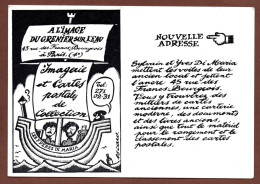 A L'IMAGE
DU GRENIER SUR L'EAU
45 rue des Francs Bourgeois
à Paris. (4e)
Imagerie
et Cartes
postales
de
Collection
Tel.
271
02-31
SYLVAIN ET YVES DI MARIA
NOUVELLE
ADRESSE
Sylvain et Yves Di Maria
mettent les voiles de leur
ancien local et jettent
l'ancre 45 rue des
Francs Bourgeois.
Vous y trouverez des
milliers de cartes
anciennes, une carterie
moderne, des documents
et des livres anciens,
ainsi que tout le matériel
pour le rangement et le
classement des cartes
postales.